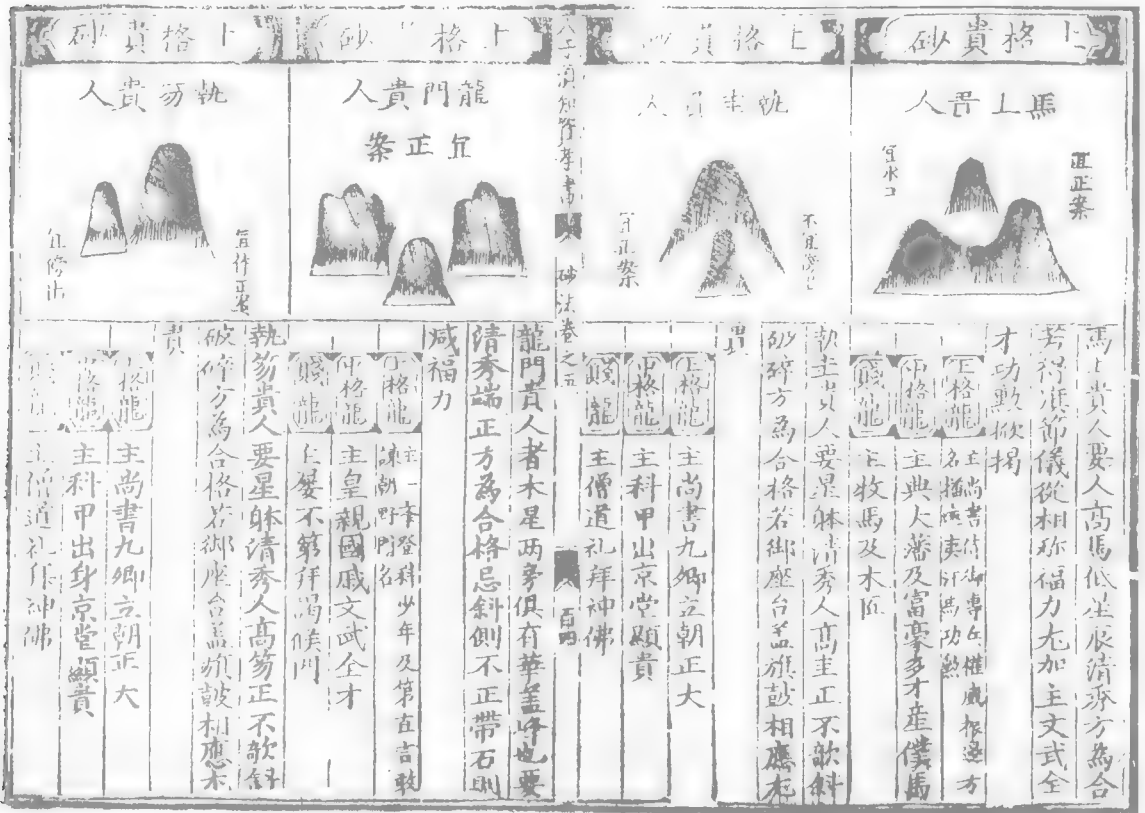 上格貴砂
馬上貴人
宜正案
宜水口
馬上貴人要人高馬低星辰清秀方為合
若得旌節儀從相称福力尤加主文武全
才功勳掀揭
上格龍
主尚書侍御專兵權威振邊方
名播殊夷汗馬功勲
中格龍
主典大藩及富豪多才産僕馬
賤龍
主牧馬及木匠
上格貴砂
執圭貴人
宜正案
執圭貴人要星躰清秀人高圭正不欹斜
破碎方為合格若御座台盖旗鼓相應尤
貴
上格龍
主尚書九卿立朝正大
中格龍
主科甲出身京堂顯貴
賤龍
主僧道礼拜神佛
人子須知資孝書
砂法卷之五
上格貴砂
龍門貴人
宜正案
龍門貴人者木星两旁俱有華盖峰也要
清秀端正方為合格忌斜側不正帶石則
減福力
上格龍
主一舉登科少年及第直言敢
諫朝野聞名
中格龍
主皇親國戚文武全才
賤龍
主屡不第拜謁候門
上格貴砂
執笏貴人
宜作正案
執笏貴人要星躰清秀人高笏正不欹斜
破碎方為合格若御座台盖旗鼓相應尤
貴
上格龍
主尚書九卿立朝正大
中格龍
主科甲出身京堂顯貴
賤龍
主僧道礼拜神佛